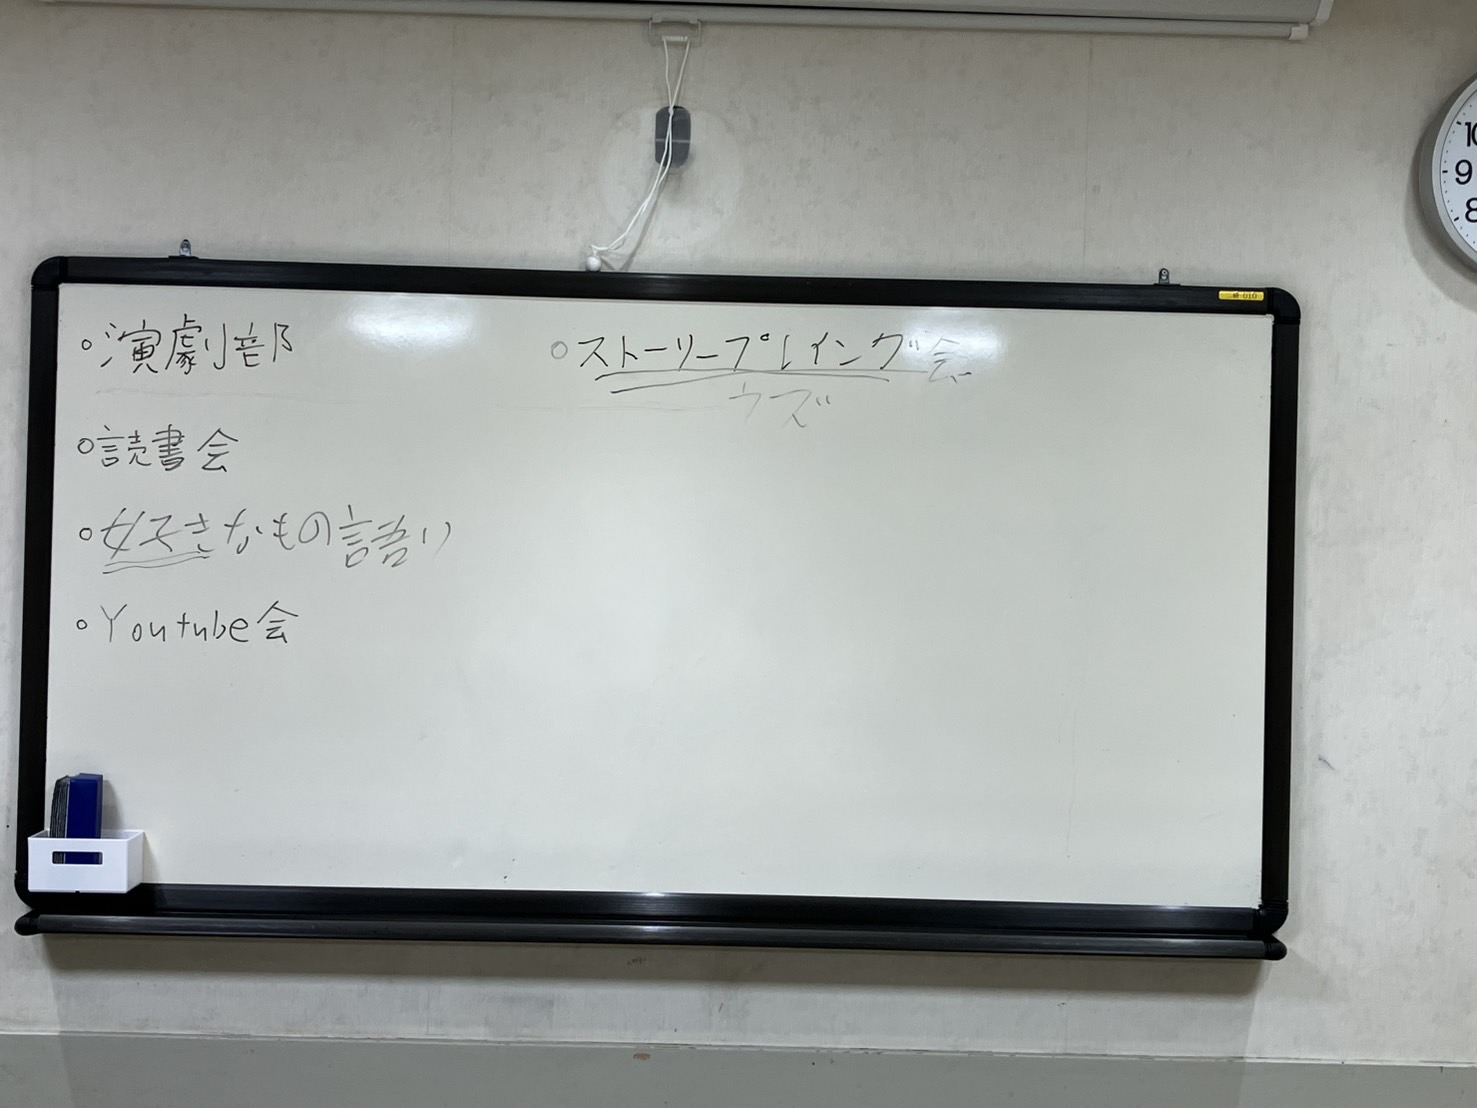 ○演劇部
○読書会
○好きなもの語り
○Youtube会
○ストーリープレイング会
ウズ
10
9
8